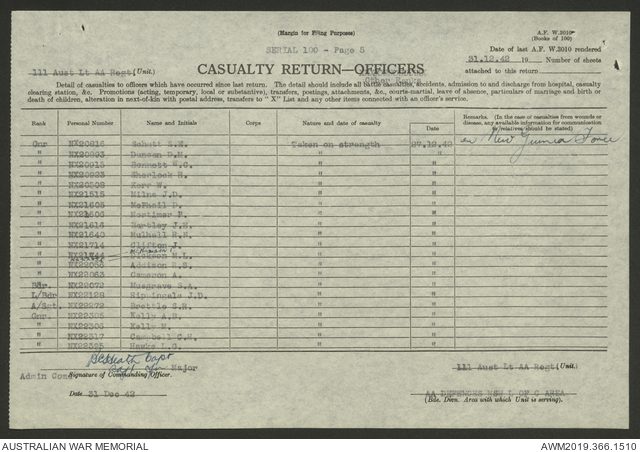 (Margin for Filing Purposes)
A.F. W.3010
(Books of 100)
SERIAL 100 - Page 5
Date of last A.F. W.3010 rendered
111 Aust Lt AA Regt (Unit.)
31.12.42 19 Number of sheets
CASUALTY RETURN—OFFICERS
Other Ranks
attached to this return
Detail of casualties to officers which have occurred since last return. The detail should include all battle casualties, accidents, admission to and discharge from hospital, casualty
clearing station, &c. Promotions (acting, temporary, local or substantive), transfers, postings, attachments, &c., courts-martial, leave of absence, particulars of marriage and birth or
death of children, alteration in next-of-kin with postal address, transfers to "X" List and any other items connected with an officer's service.
Rank Personal Number Name and Initials Corps Nature and date of casualty Date Remarks. (In the case of casualties from wounds or disease, any available information for communication to relatives should be stated)
Gnr NX20816 Schott Taken on strength 27.12.42 in New Guinea Force
" Duncan D.M. " "
" Bennett " "
" Sherlock R. " "
" Kerr W. " "
" NX21515 Milne J.D. " "
" NX21605 McPhail D. " "
" NX21606 Mortimer F. " "
" NX21616 Hartley J.H. " "
" NX21640 Mulhall " "
" NX21714 Clifton J. " "
" NX21744 " "
" Addison " "
" NX22063 Cameron A. " "
Bdr. NX22072 Musgrave S.A. " "
L/Bdr NX22128 Rippingale J.D. " "
A/Sgt. NX22272 Brettle " "
Gnr. NX22305 Kelly " "
" Kelly M. " "
" NX22317 Campbell " "
" NX22325 Hawke L.G. " "
Capt
Major
111 Aust Lt AA Regt (Unit)
Admin Comd Signature of Commanding Officer.
Date 31 Dec 42
AA DEFENCES L OF C AREA
(Bde. Divn. Area with which Unit is serving).
AUSTRALIAN WAR MEMORIAL
AWM2019.366.1510